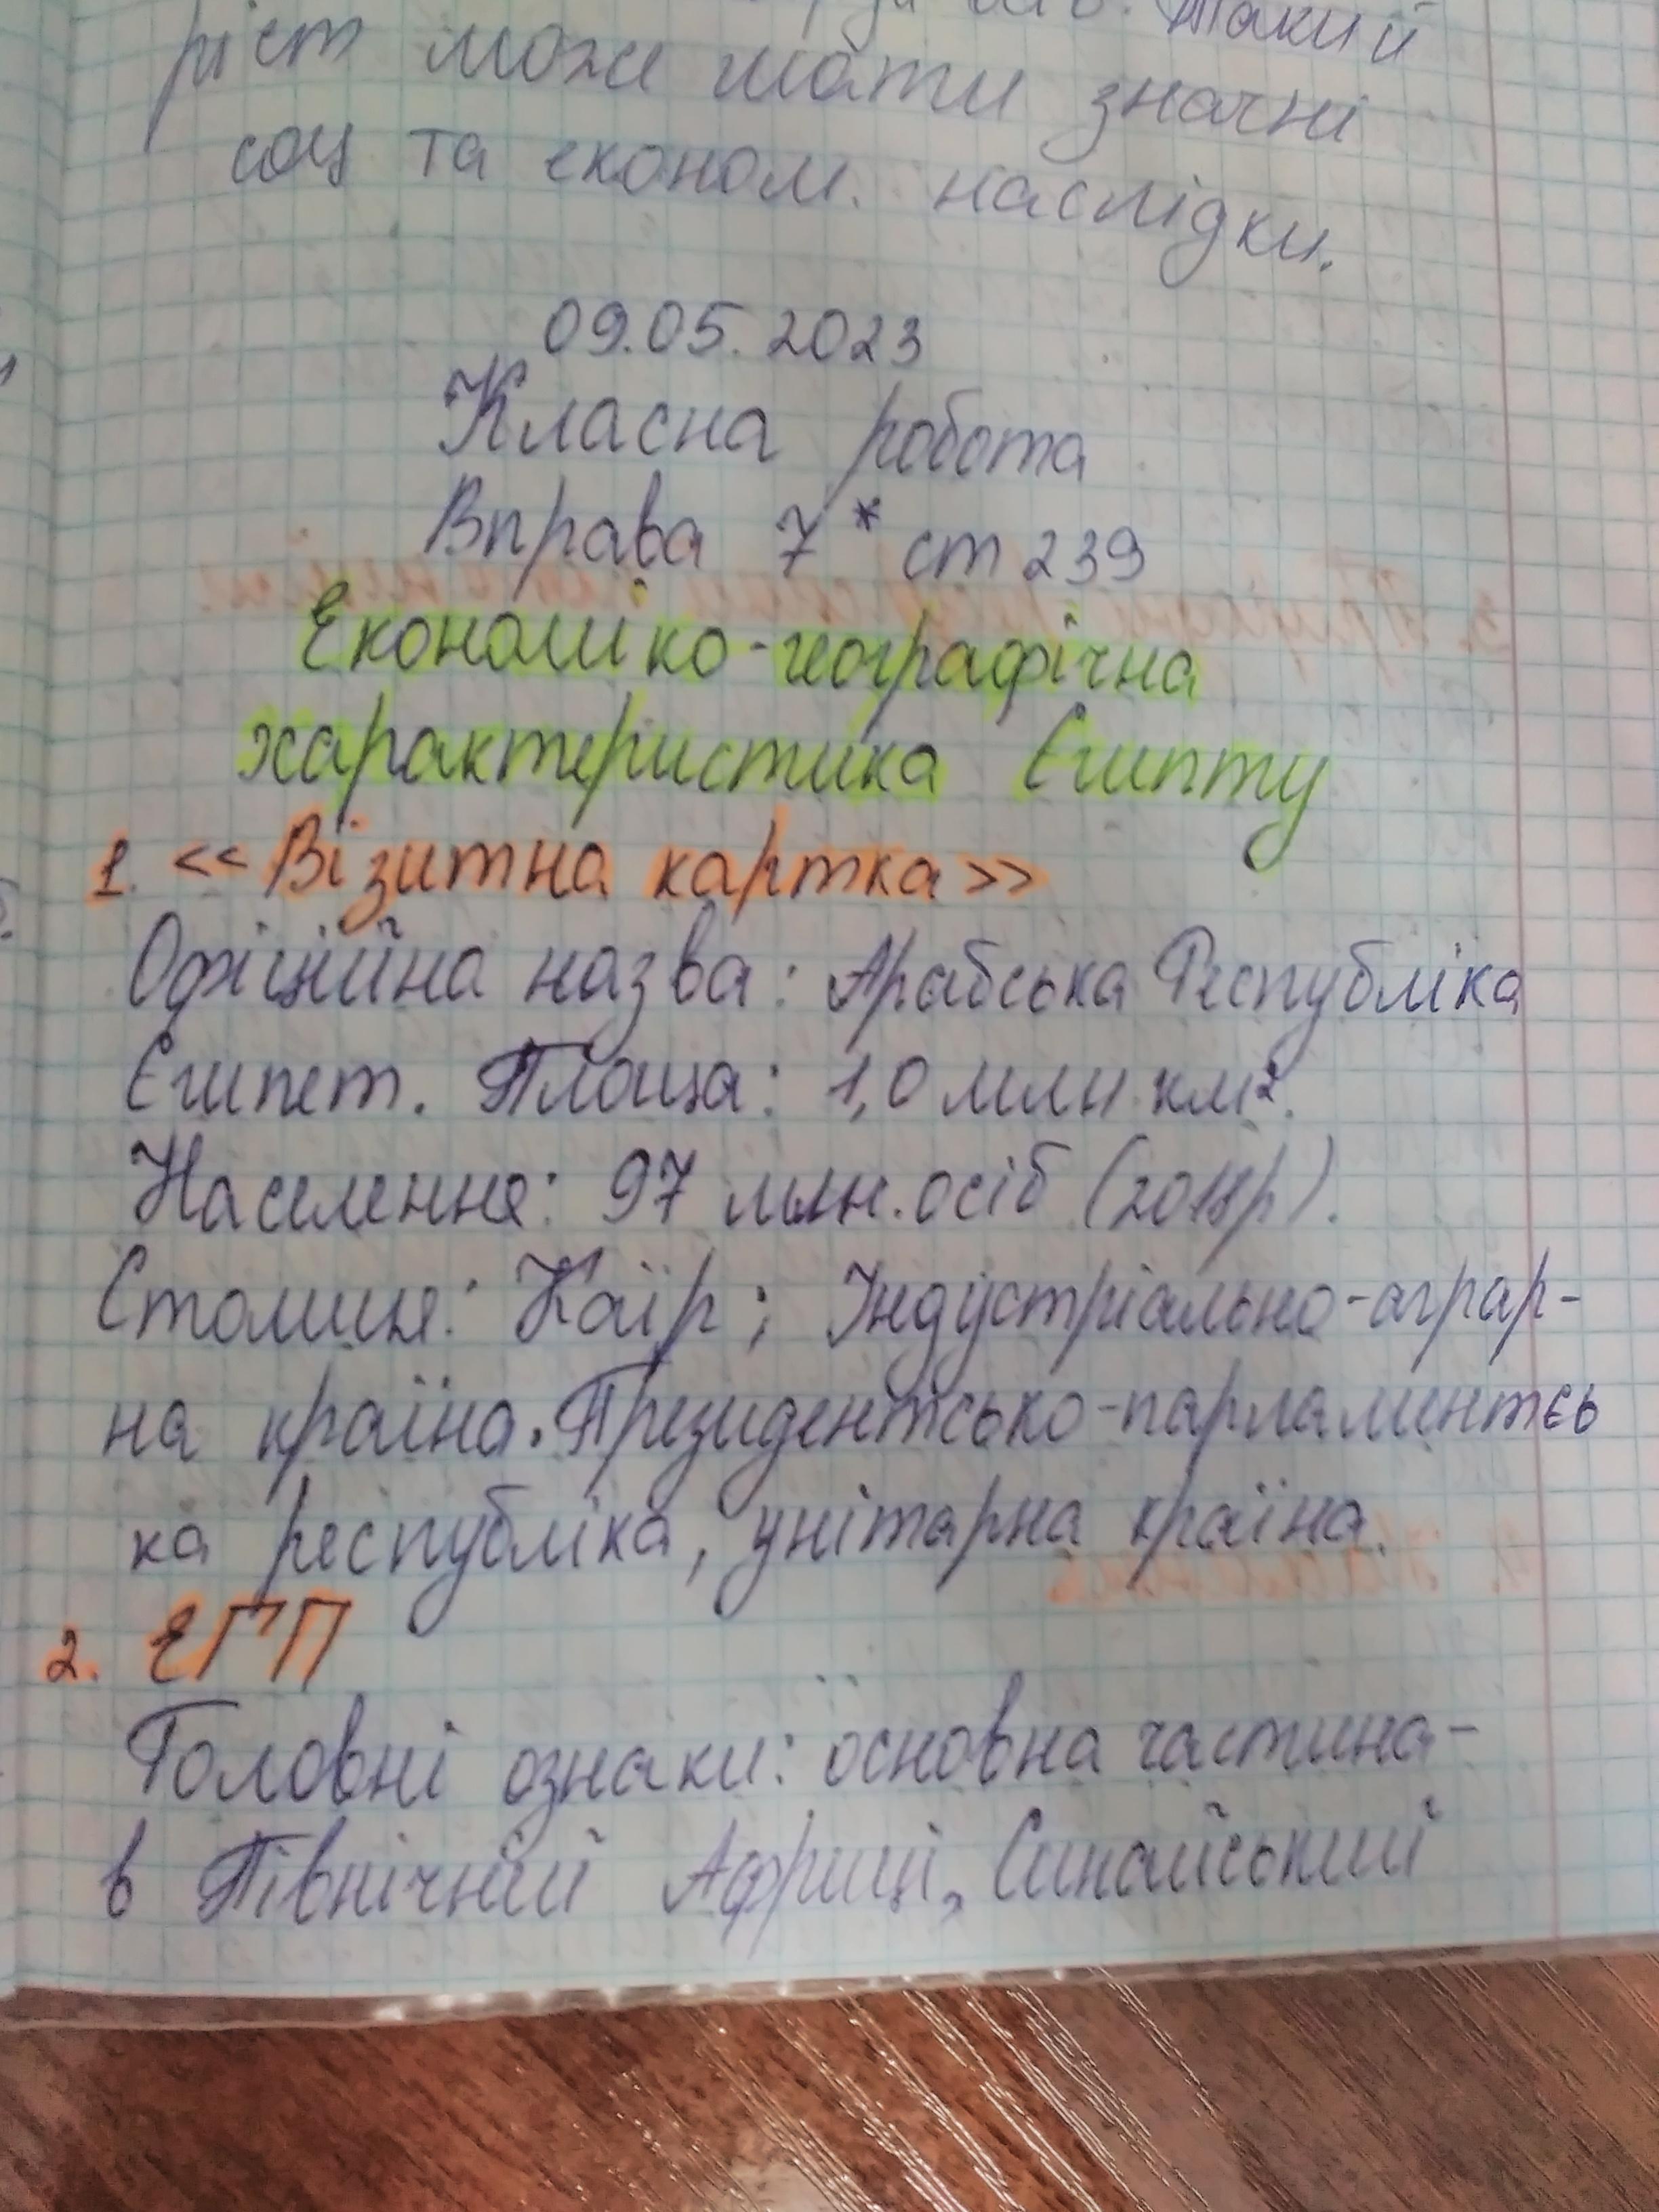 Такий
ріст може мати значні
соц та економ. наслідки.
09.05.2023
Класна робота
Вправа 7* ст 239
Економіко-географічна
характеристика Єгипту
1. <<Візитна картка>>
Офіційна назва: Арабська Республіка
Єгипет. Площа: 1,0 млн км².
Населення: 97 млн. осіб (2018р).
Столиця: Каїр; Індустріально-аграр-
на країна. Президентсько-парламентсь
ка республіка, унітарна країна.
2. ЕГП
Головні ознаки: основна частина-
в Північній Африці, Синайський